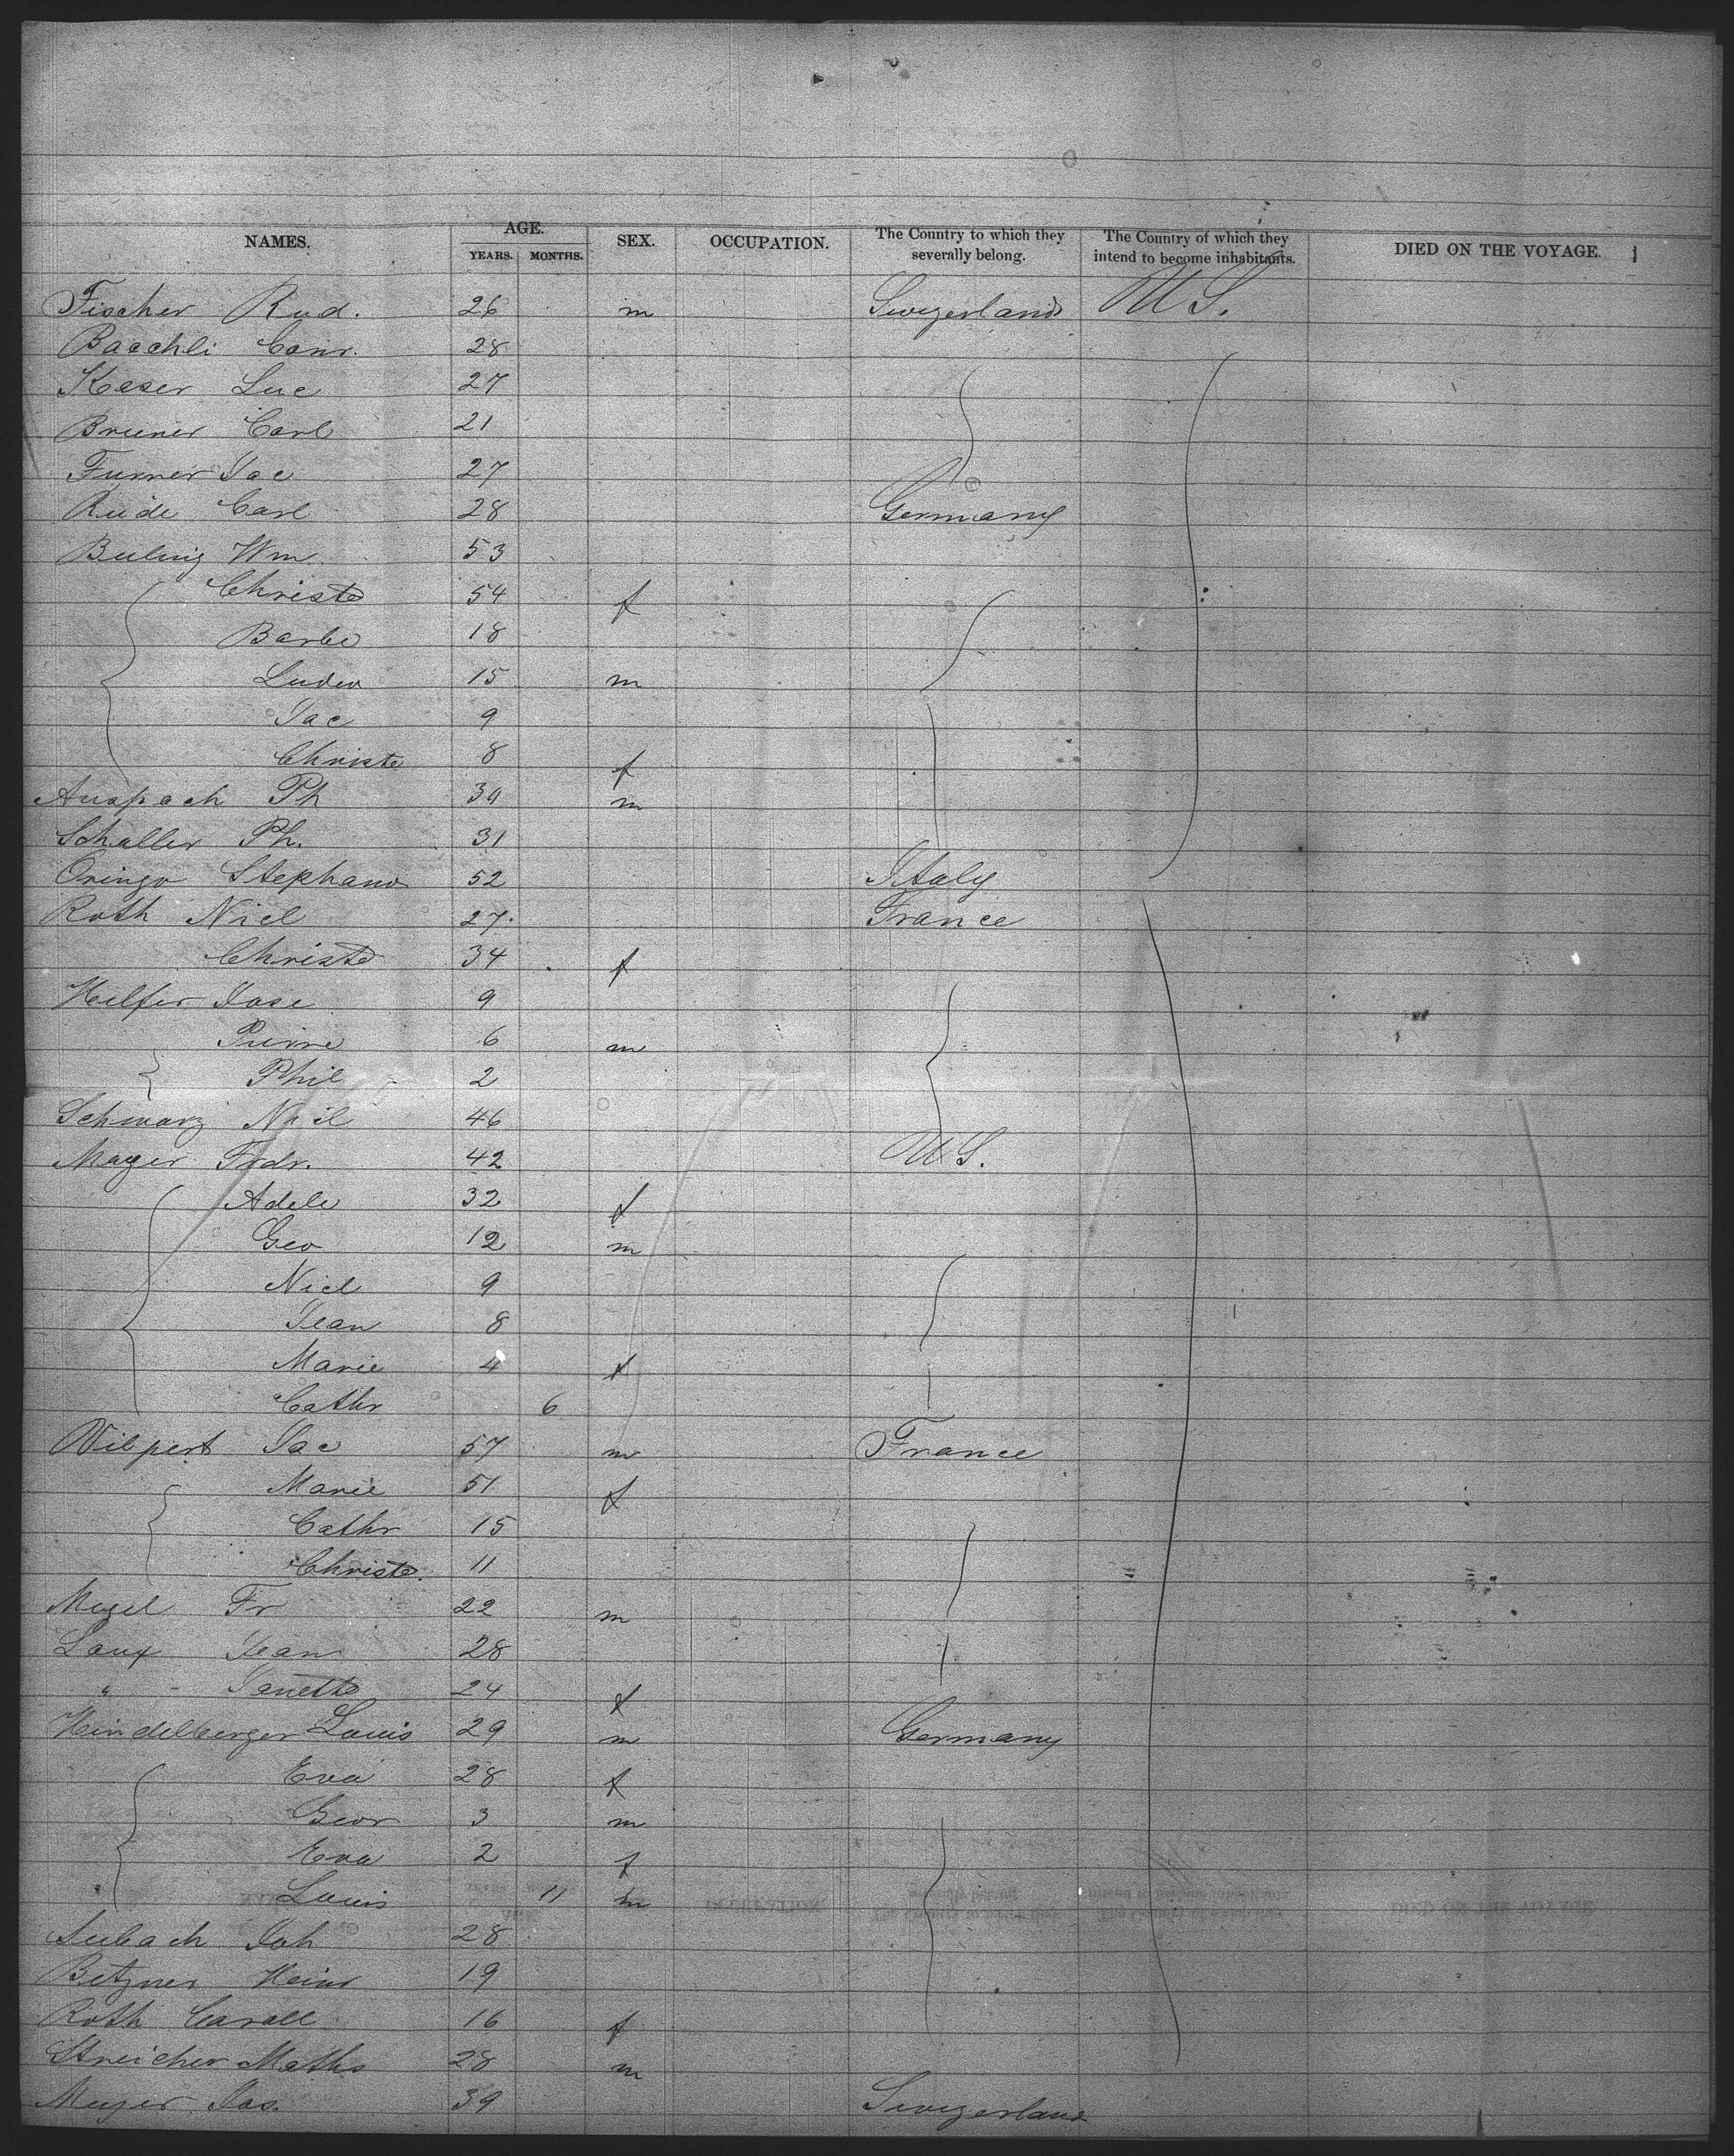 NAMES. AGE. SEX. OCCUPATION. The Country to which they severally belong. The Country of which they intend to become inhabitants. DIED ON THE VOYAGE.
YEARS. MONTHS.
Fischer Rud. 26 m Swizerland U S.
Baechli Conr. 28
Kaeser Luc 27
Bruner Carl 21
Furrer Jac 27
Rüde Carl 28 Germany
Wm 53
Christe 54 f
Barbe 18
Ludw 15 m
Jac 9
Christe 8 f
Auspach Ph m
Schaller Ph. 31
Oringo Stephano 52 Italy
Roth Nicl 27. France
Christe 34 f
Helfer Jose 9
Pierre 6 m
Phil 2
Schwarz Nicl 46
Mayer Fedr. 42 U S.
Adele 32 f
Geo 12 m
Nicl 9
Jean 8
Marie 4 f
Cathr 6
Wilpert Jac 57 m France
Marie 51 f
Cathr 15
Christe. 11
Fr 22 m
Laux Jean 28
" Janette 24 f
Hindelberger Louis 29 m Germany
Eva 28 f
Geor 3 m
Eva 2 f
Louis 11 m
Joh 28
Betzner Heinr 19
Roth Caroll 16 f
Streicher Maths 28 m
Meyer Jos. 39 Swizerland